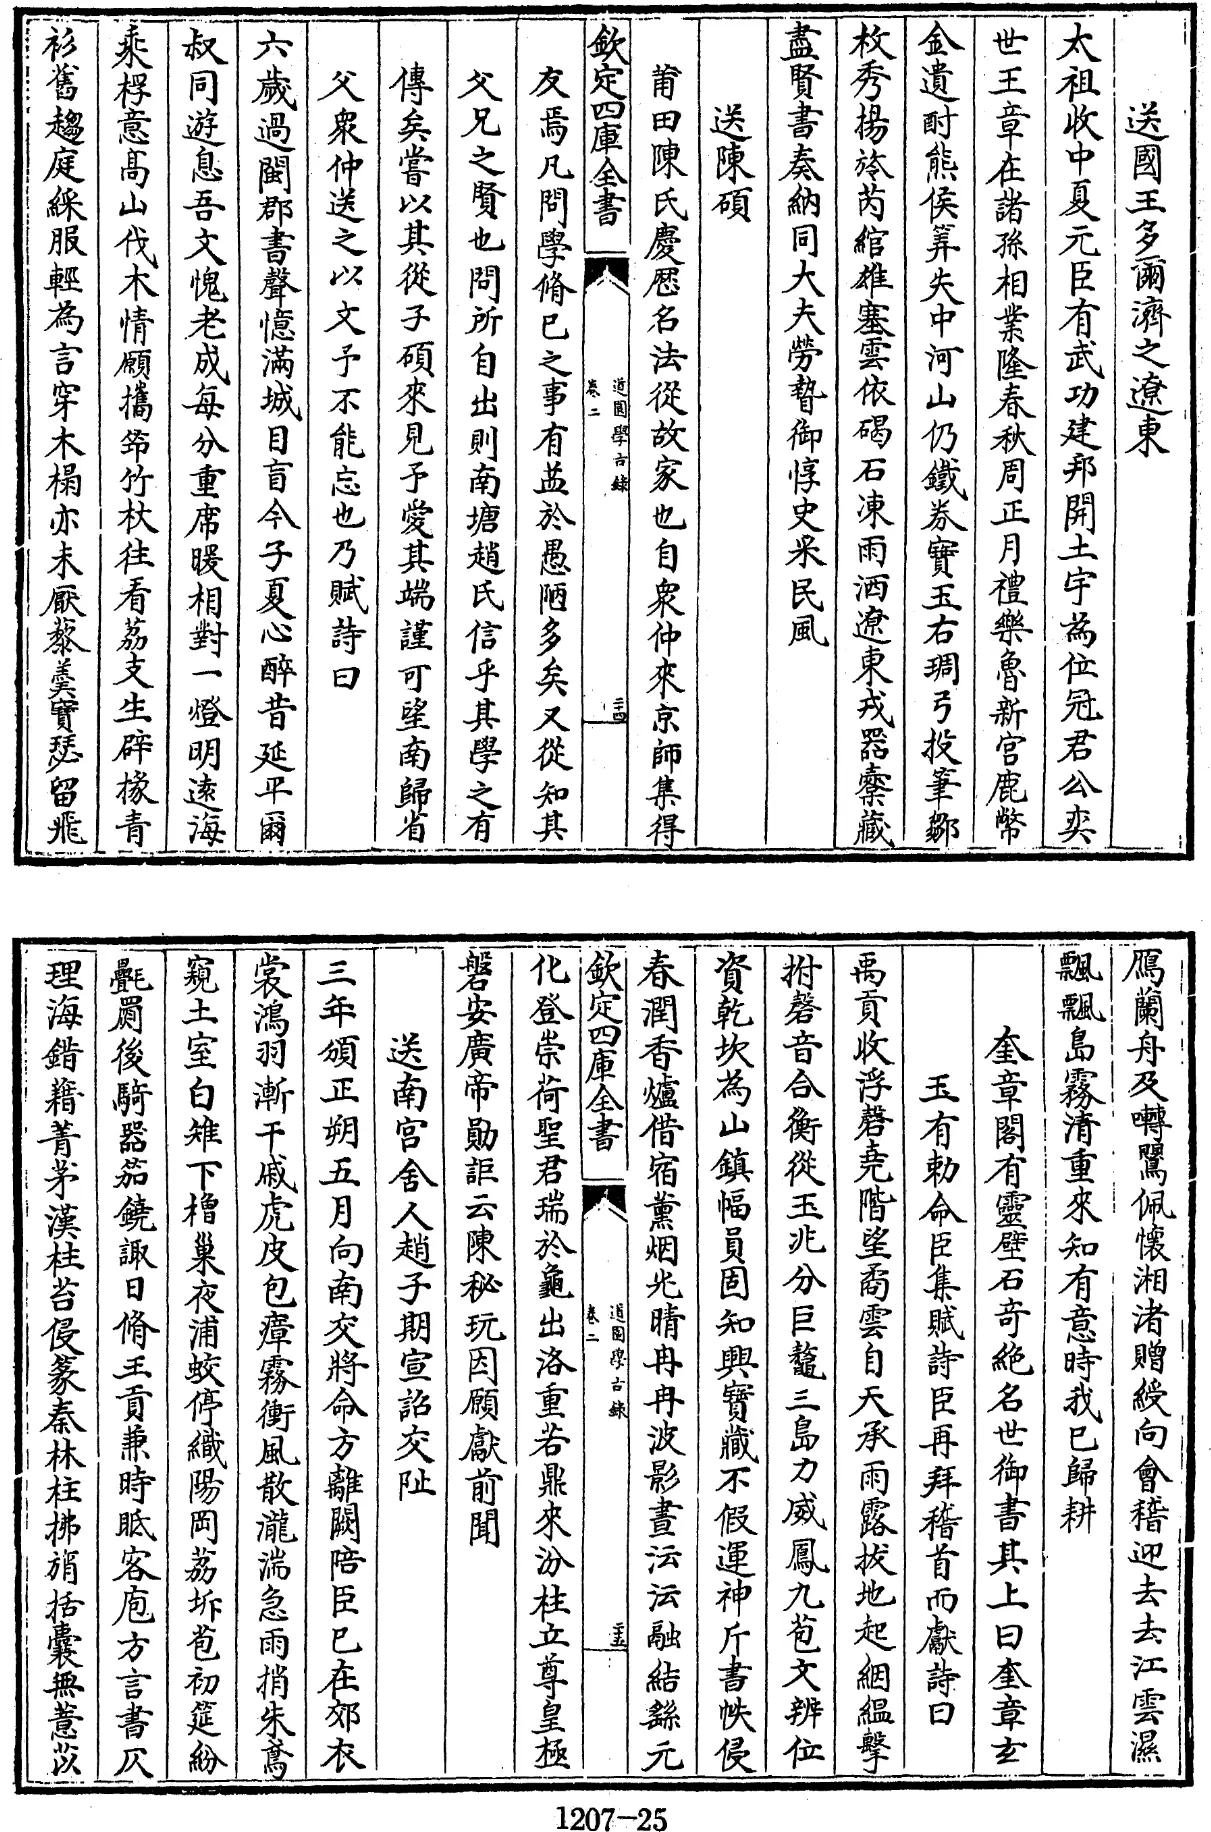 送國王多爾濟之遼東
太祖收中夏元臣有武功建邦開土宇為位冠君公奕
世王章在諸孫相業隆春秋周正月禮樂魯新宮鹿幣
金遺酎熊侯筭失中河山仍鐵券寶玉右琱弓投筆鄒
枚秀揚旍芮綰雄塞雲依碣石凍雨洒遼東戎器櫜藏
盡賢書奏納同大夫勞執御惇史采民風
送陳碩
莆田陳氏慶厯名法從故家也自衆仲來京師集得
欽定四庫全書
道園學古錄
卷二
二十四
友焉凡問學脩已之事有益於愚陋多矣又從知其
父兄之賢也問所自出則南塘趙氏信乎其學之有
傳矣嘗以其從子碩來見予愛其端謹可望南歸省
父衆仲送之以文予不能忘也乃賦詩曰
六歲過閩郡書聲憶滿城目盲今子夏心醉昔延平爾
叔同遊息吾文愧老成每分重席暖相對一燈明遠海
乘桴意髙山伐木情願攜筇竹杖往看荔支生辟掾青
衫舊趨庭綵服輕為言穿木榻亦未厭藜羮寳瑟留飛
鴈蘭舟及囀鸎佩懷湘渚贈綬向會稽迎去去江雲濕
飄飄島霧清重來知有意時我已歸耕
奎章閣有靈壁石奇絶名世御書其上曰奎章玄
玉有勅命臣集賦詩臣再拜稽首而獻詩曰
禹貢收浮磬堯階望矞雲自天承雨露拔地起絪緼擊
拊磬音合衡從玉兆分巨鼇三島力威鳳九苞文辨位
資乾坎為山鎮幅員固知興寶藏不假運神斤書帙侵
春潤香爐借宿薰烟光晴冉冉波影晝沄沄融結繇元
欽定四庫全書
道園學古錄
卷二
二十五
化登崇荷聖君瑞於龜出洛重若鼎來汾柱立尊皇極
磐安廣帝勛詎云陳秘玩因願獻前聞
送南宮舍人趙子期宣詔交阯
三年頒正朔五月向南交將命方離闕陪臣已在郊衣
裳鴻羽漸干戚虎皮包瘴霧衝風散瀧湍急雨捎朱鳶
窺土室白雉下櫓巢夜浦蛟停織陽岡荔坼苞初筵紛
氎罽後騎器茄鐃諏日脩王貢兼時眂客庖方言書仄
理海錯藉菁茅漢柱苔侵篆秦林柱拂旓括囊無薏苡
1207-25